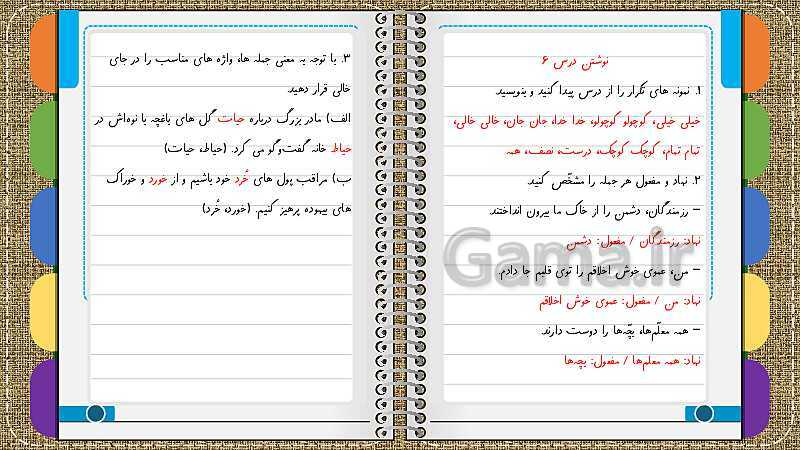 نوشتن درس ۶
۱. نمونه های تکرار را از درس پیدا کنید و بنویسید.
خیلی خیلی، کوچولو کوچولو، خدا خدا، جان جان، خالی خالی،
تمام تمام، کوچک کوچک، درست، نصف، همه
۲. نهاد و مفعول هر جمله را مشخّص کنید.
– رزمندگان، دشمن را از خاک ما بیرون انداختند.
نهاد: رزمندگان / مفعول: دشمن
– من، عموی خوش اخلاقم را توی قلبم جا دادم.
نهاد: من / مفعول: عموی خوش اخلاقم
– همه معلّم‌ها، بچّه‌ها را دوست دارند.
نهاد: همه معلم‌ها / مفعول: بچه‌ها
۳. با توجه به معنی جمله ها، واژه های مناسب را در جای
خالی قرار دهید.
الف) مادر بزرگ درباره حیات گل های باغچه با نوه‌اش در
حیاط خانه گفت‌و‌گو می کرد. (حیاط، حیات)
ب) مراقب پول های خُرد خود باشیم و از خورد و خوراک
های بیهوده پرهیز کنیم. (خورد، خُرد)
Gama.ir